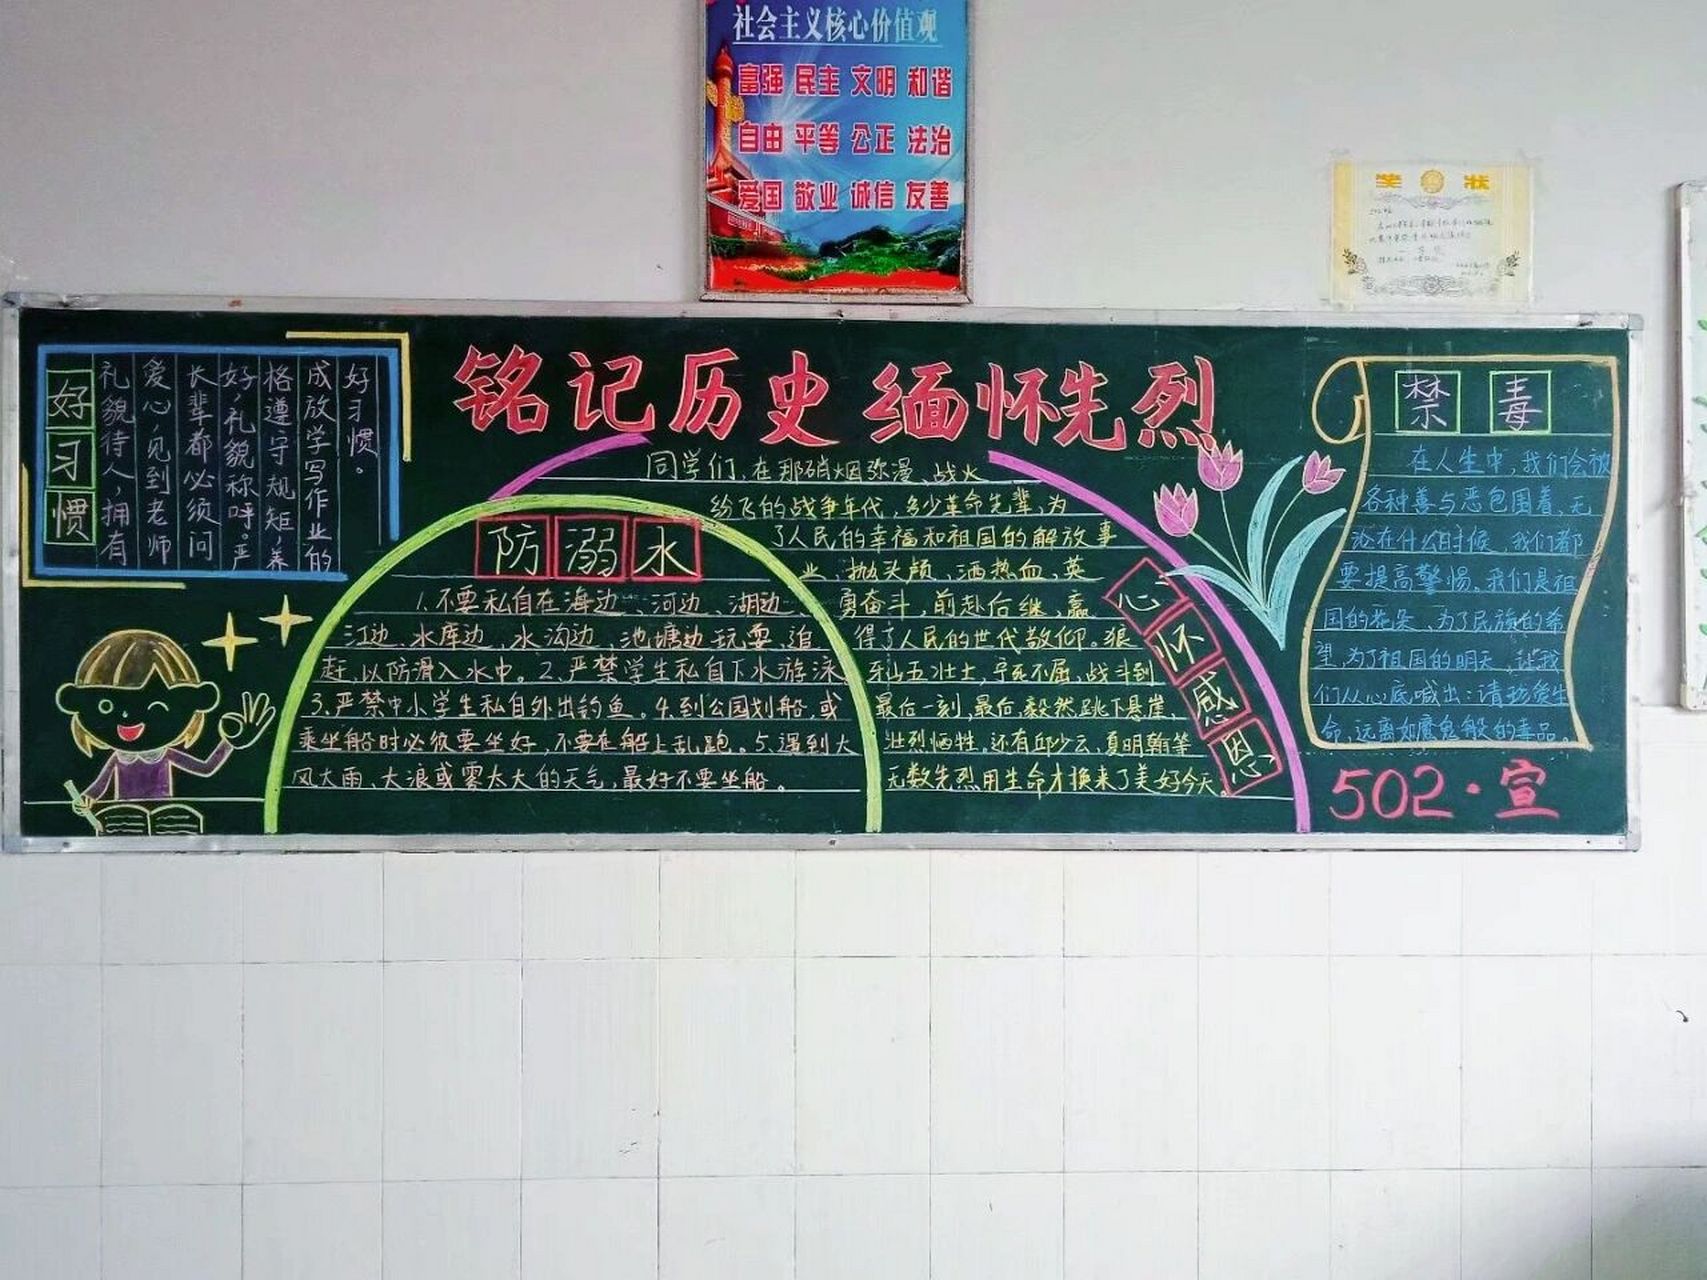 社会主义核心价值观
富强 民主 文明 和谐
自由 平等 公正 法治
爱国 敬业 诚信 友善
奖状
铭记历史 缅怀先烈
好习惯
礼貌待人,拥有
爱心,见到老师
长辈都必须问
好,礼貌称呼。严
格遵守规矩,养
成放学写作业的
好习惯。
防溺水
1.不要私自在海边、河边、湖边、
江边、水库边、水沟边、池塘边玩耍、追
赶,以防滑入水中。2.严禁学生私自下水游泳
3.严禁中小学生私自外出钓鱼。4.到公园划船,或
乘坐船时必须要坐好,不要在船上乱跑。5.遇到大
风大雨、大浪或雾太大的天气,最好不要坐船。
同学们,在那硝烟弥漫、战火
纷飞的战争年代,多少革命先辈,为
了人民的幸福和祖国的解放事
业,抛头颅、洒热血,英
勇奋斗,前赴后继,赢
得了人民的世代敬仰。狼
牙山五壮士,宁死不屈,战斗到
最后一刻,最后,毅然跳下悬崖,
壮烈牺牲。还有邱少云,夏明翰等
无数先烈用生命才换来了美好今天。
心怀感恩
禁毒
在人生中,我们会被
各种善与恶包围着,无
论在什么时候,我们都
要提高警惕。我们是祖
国的花朵,为了民族的希
望,为了祖国的明天,让我
们从心底喊出:请珍爱生
命,远离如魔鬼般的毒品。
502·宣